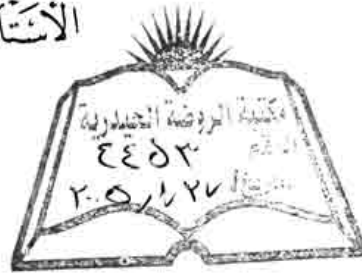 الأستا
مكتبة الروضة الحيدرية
الرقم ٤٤٥٣
التاريخ ٢٧/١/٢٠٠٥